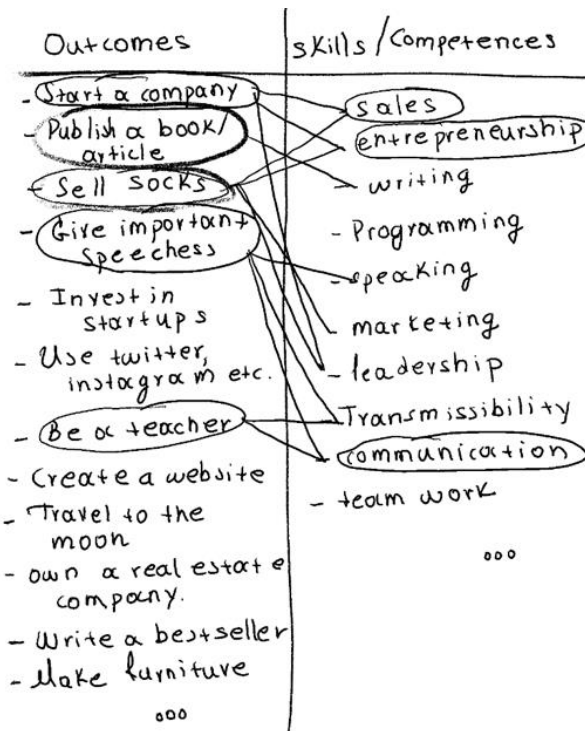 Outcomes
- Start a company
- Publish a book/
article
- Sell socks
- Give important
speechess
- Invest in
startups
- Use twitter,
instagram etc.
- Be a teacher
- Create a website
- Travel to the
moon
- own a real estate
company.
- Write a bestseller
- Make furniture
ooo
skills/Competences
sales
entrepreneurship
- writing
- Programming
- speaking
- marketing
- leadership
Transmissibility
communication
- team work
ooo